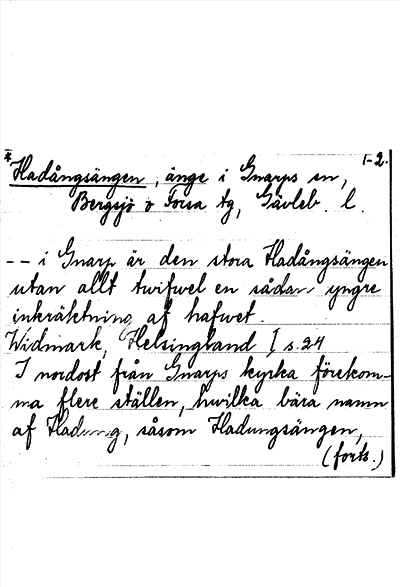 * Hadångsängen, änge i Gnarps sn, 1-2.
Bergsjö o Forsa tg, Gävleb. l.
-- i Gnarp är den stora Hadångsängen
utan allt twifwel en sådan yngre
inkräktning af hafwet.
Widmark, Helsingland I s.24
I nordost från Gnarps kyrka förekom-
ma flere ställen, hwilka bära namn
af Hadung, såsom Hadungsängen,
(forts.)